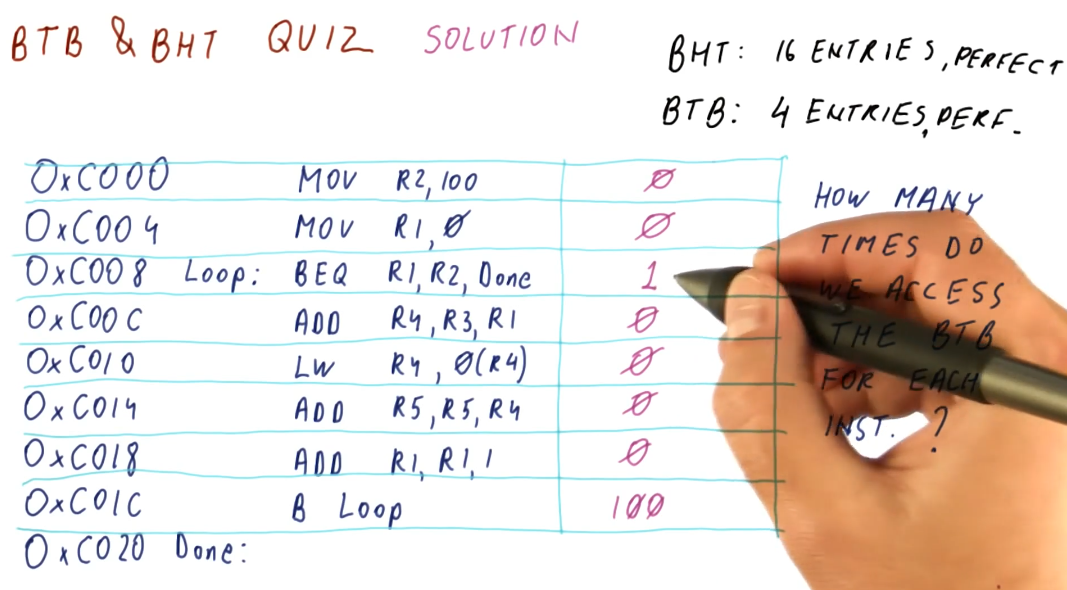 BTB & BHT QUIZ SOLUTION
BHT: 16 ENTRIES, PERFECT
BTB: 4 ENTRIES, PERF.
0xC000 MOV R2, 100 0
0xC004 MOV R1, 0 0
0xC008 Loop: BEQ R1, R2, Done 1
0xC00C ADD R4, R3, R1 0
0xC010 LW R4, 0(R4) 0
0xC014 ADD R5, R5, R4 0
0xC018 ADD R1, R1, 1 0
0xC01C B Loop 100
0xC020 Done:
HOW MANY
TIMES DO
WE ACCESS
THE BTB
FOR EACH
INST. ?